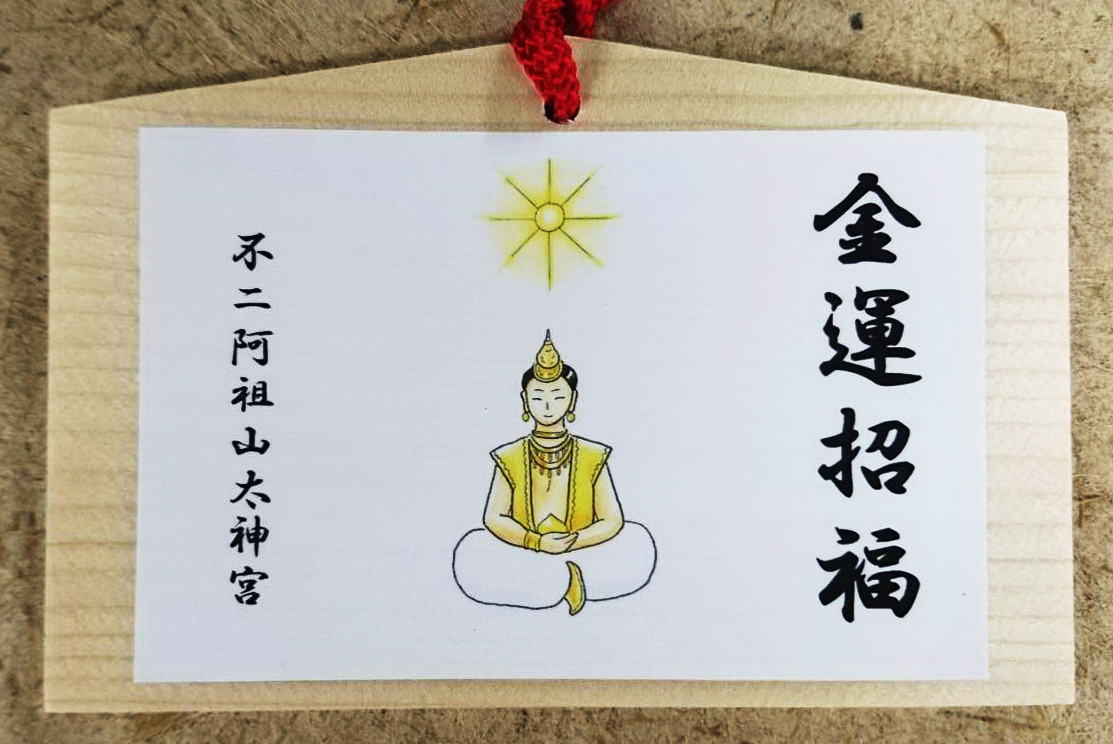 金運招福
不二阿祖山太神宮